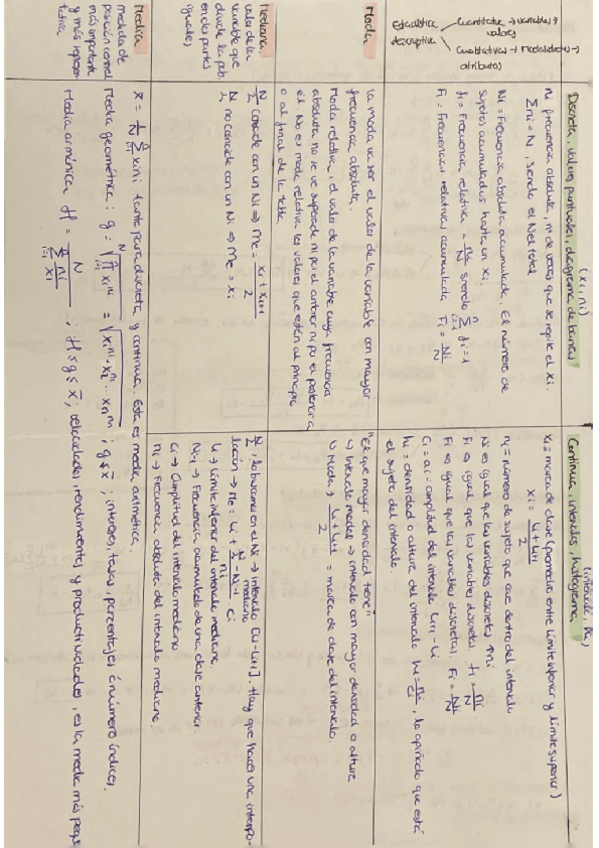 Estadística descriptiva
Cuantitativa → variables y valores
Cualitativas → modalidades → atributos
(xi, ni)
Discreta, valores puntuales, diagrama de barras
ni frecuencia absoluta, nº de veces que se repite el xi.
Σni = N, siendo el N el total
Ni = Frecuencia absoluta acumulada. El número de
sujetos acumulados hasta un xi.
fi = Frecuencia relativa = ni/N siendo Σ fi = 1
Fi = Frecuencias relativas acumulada Fi = Ni/N
Continua, intervalos, histograma
xi = marca de clase (promedio entre límite inferior y límite superior)
xi = (Li + Li+1)/2
ni = número de sujeto que cae dentro del intervalo
Ni es igual que las variables discretas
fi es igual que las variables discretas fi = ni/N
Fi es igual que las variables discretas Fi = Ni/N
Ci = ai = amplitud del intervalo Li+1 - Li
hi = densidad o altura del intervalo hi = ni/ci, lo apiñado que está
el sujeto del intervalo.
Moda
La moda va por el valor de la variable con mayor
frecuencia absoluta.
Moda relativa, el valor de la variable cuya frecuencia
absoluta no se ve superada ni por el anterior ni por el posterior a
él. No es moda relativa los valores que estén al principio
o al final de la tabla.
"El que mayor densidad tiene"
↳ Intervalo modal → intervalo con mayor densidad o altura
↳ Moda → (Li + Li+1)/2 = marca de clase del intervalo.
Mediana
valor de la
variable que
divide la pob
en dos partes
iguales
N/2 coincide con un Ni ⇒ Me = (xi + xi+1)/2
N/2 no coincide con un Ni ⇒ Me = xi
N/2, lo buscamos en el Ni → intervalo mediano [Li - Li+1]. Hay que hacer una interpo-
lación → Me = Li + (N/2 - Ni-1)/ni · ci
Li → Límite inferior del intervalo mediano.
Ni-1 → Frecuencia acumulada de una clase anterior.
Ci → Amplitud del intervalo mediano
ni → Frecuencia absoluta del intervalo mediano.
Media
medida de
posición central
más importante
y más represen-
tativa
x̄ = 1/N Σ xi ni tanto para discreta y continua. Esta es media aritmética.
Media geométrica: g = ᴺ√(Π xi^ni) = √(x1^n1 · x2^n2 ... xn^nn) ; g ≤ x̄ ; intereses, tasas, porcentajes, números índices.
Media armónica H = N / Σ(ni/xi) ; H ≤ g ≤ x̄ ; velocidades, rendimientos y productividades, es la media más pequ